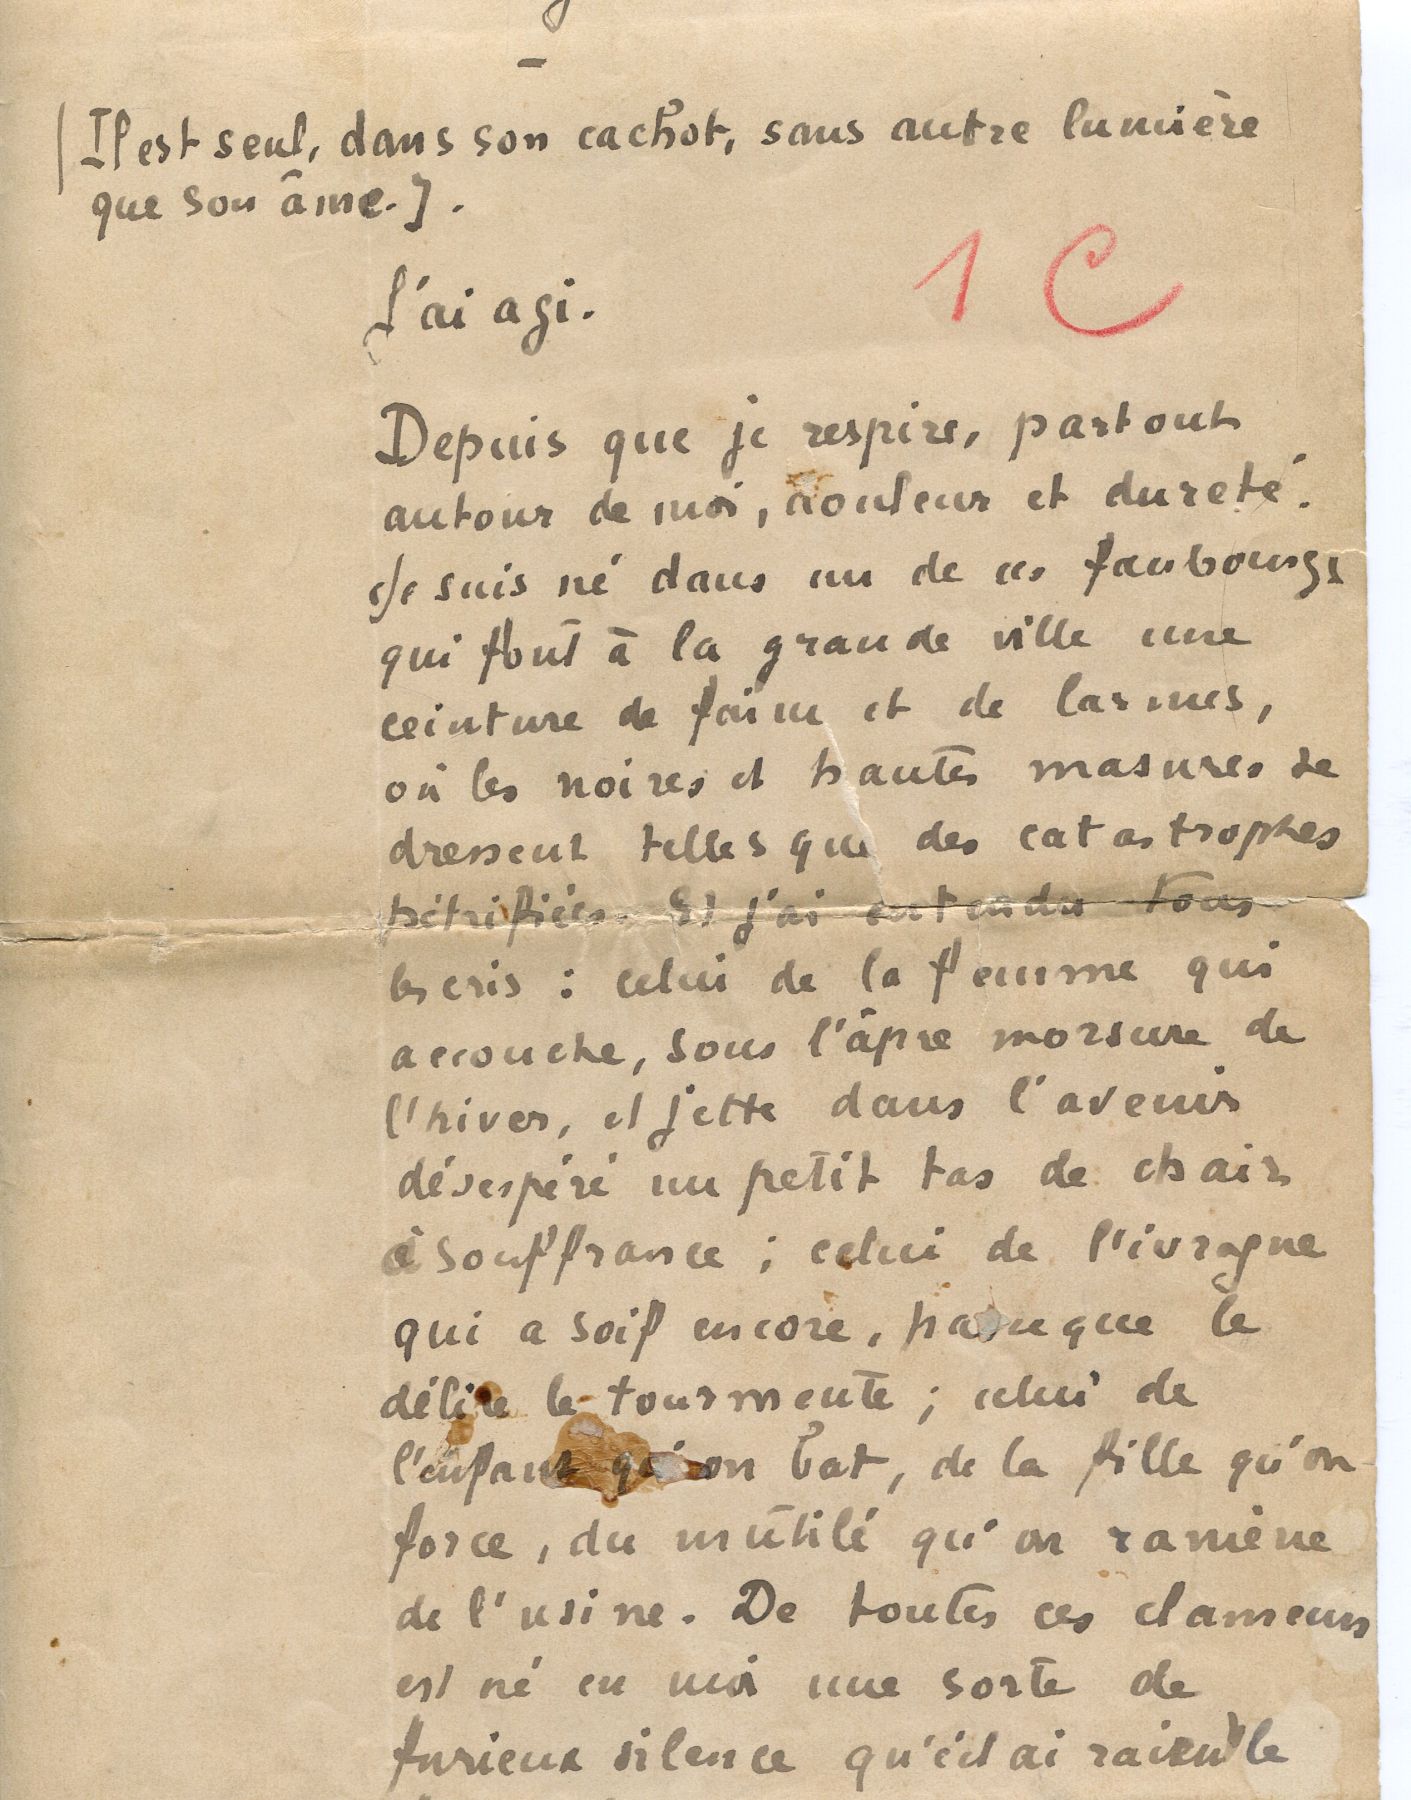 [Il est seul, dans son cachot, sans autre lumière
que son âme.].
1 C
J'ai agi.
Depuis que je respire, partout
autour de moi, douleur et dureté.
Je suis né dans un de ces faubourgs
qui font à la grande ville une
ceinture de faim et de larmes,
où les noires et hautes masures se
dressent telles que des catastrophes
pétrifiées. Et j'ai entendu tous
les cris : celui de la femme qui
accouche, sous l'âpre morsure de
l'hiver, et jette dans l'avenir
désespéré un petit tas de chair
à souffrance ; celui de l'ivrogne
qui a soif encore, parce que le
délire le tourmente ; celui de
l'enfant qu'on bat, de la fille qu'on
force, du mutilé qu'on ramène
de l'usine. De toutes ces clameurs
est né en moi une sorte de
furieux silence qu'éclairaient le